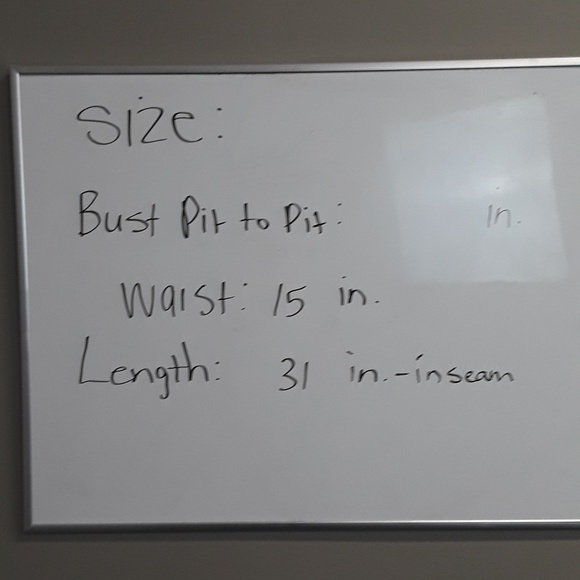 Size:
Bust Pit to Pit: in.
Waist: 15 in.
Length: 31 in.-inseam